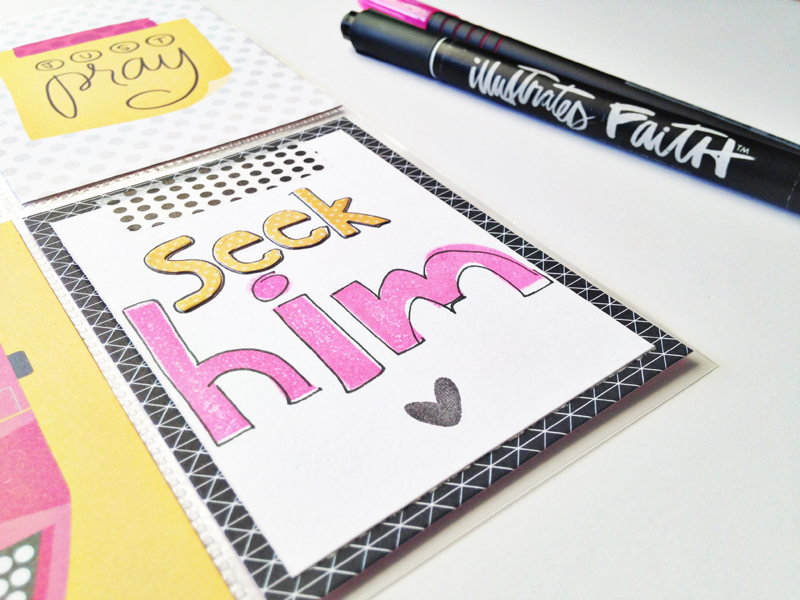 JUST
pray
illustrated Faith™
Seek
him